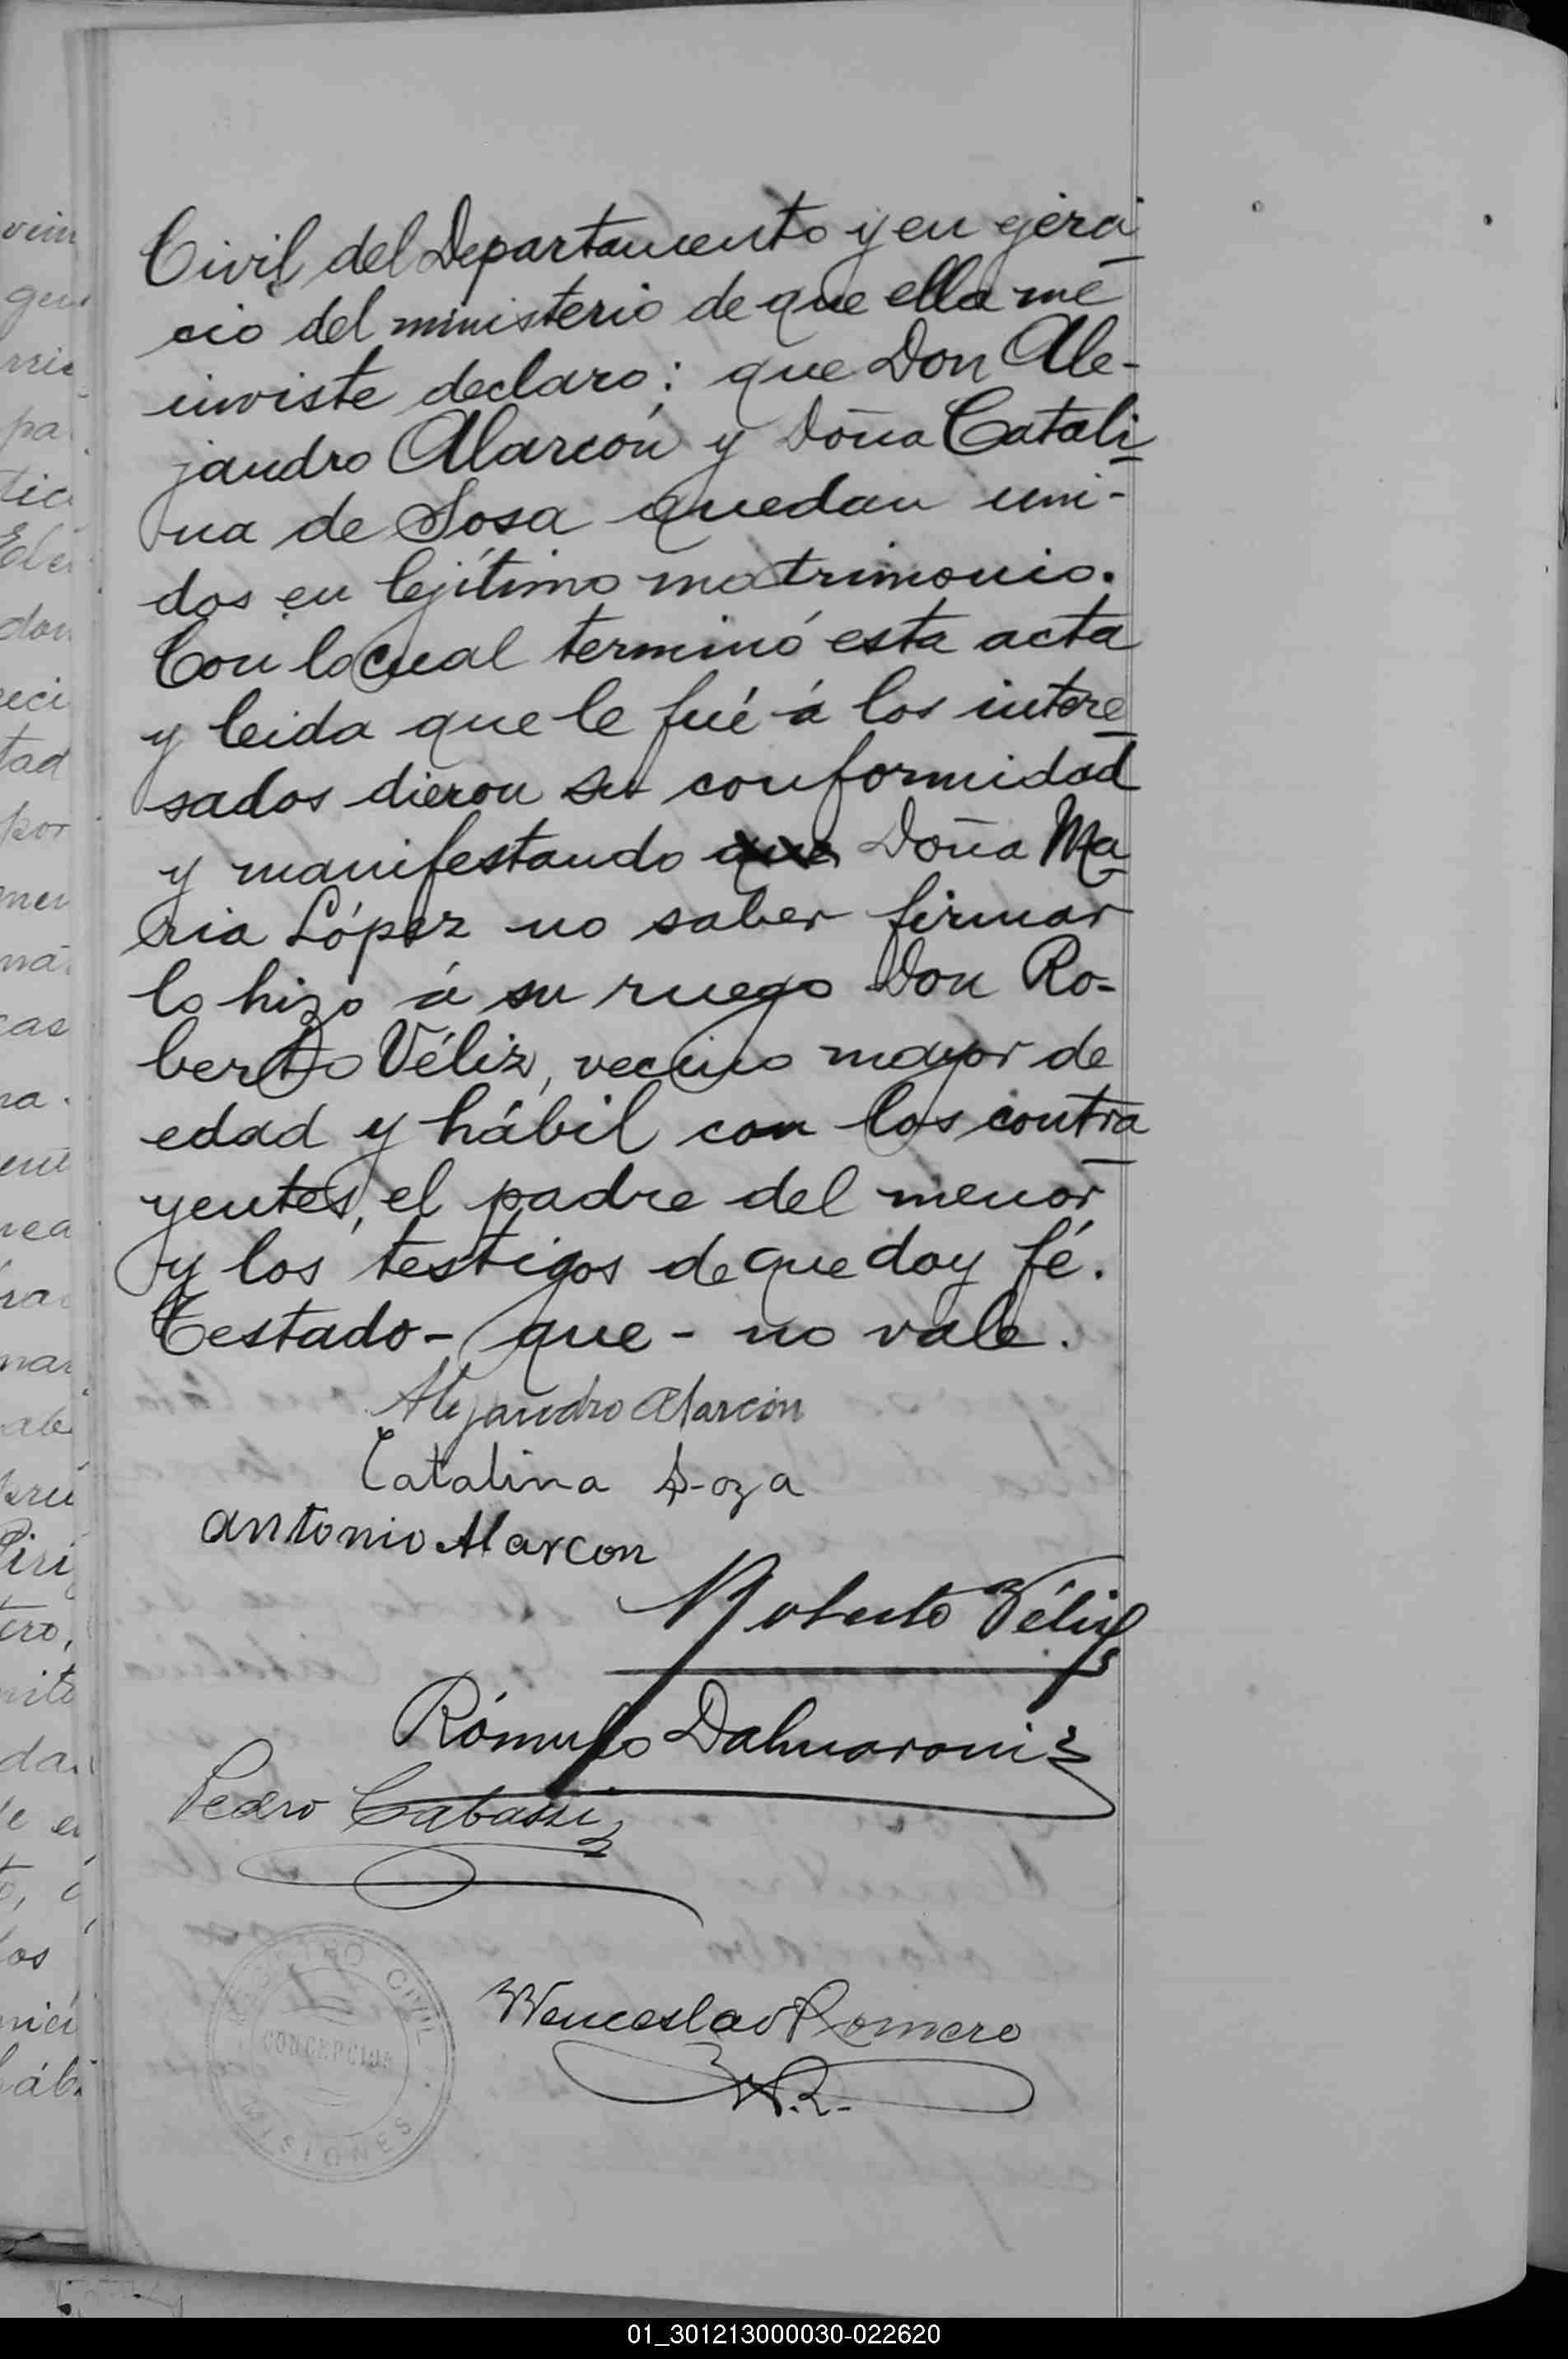 Civil del Departamento y en ejerci
cio del ministerio de que ella me
inviste declaro: que Don Ale-
jandro Alarcón y Doña Catali
na de Sosa quedan uni-
dos en lejítimo matrimonio.
Con lo cual terminó esta acta
y leida que le fué á los intere
sados dieron su conformidad
y manifestando que Doña Ma
ria López no saber firmar
lo hizo á su ruego Don Ro-
berto Véliz, vecino mayor de
edad y hábil con los contra
yentes, el padre del menor
y los testigos de que doy fé.
Testado - que - no vale.
Alejandro Alarcón
Catalina Soza
Antonio Alarcon
Roberto Véliz
Rómulo Dalmaroni
Pedro Cabassi
REGISTRO CIVIL
CONCEPCION
MISIONES
Wenceslao Romero
W.R.-
01_301213000030-022620